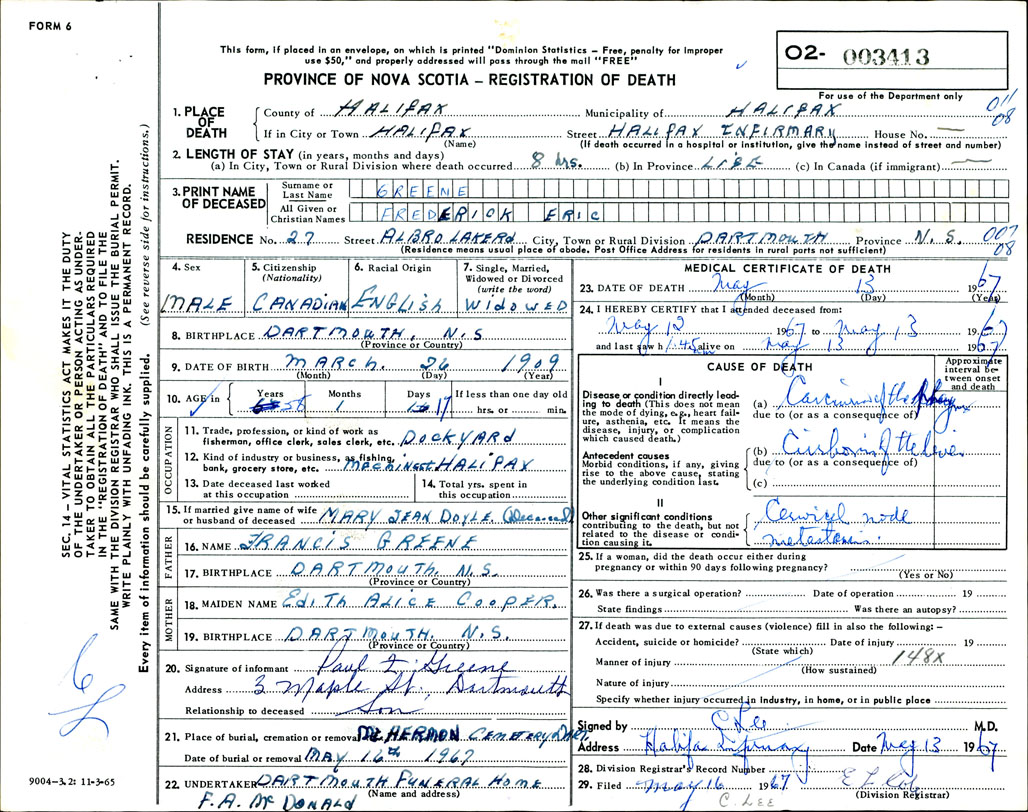 FORM 6
This form, if placed in an envelope, on which is printed "Dominion Statistics – Free, penalty for improper
use $50," and properly addressed will pass through the mail "FREE"
PROVINCE OF NOVA SCOTIA – REGISTRATION OF DEATH
O2- 003413
For use of the Department only
011
08
1. PLACE OF DEATH
County of HALIFAX Municipality of HALIFAX
If in City or Town HALIFAX Street HALIFAX INFIRMARY House No. —
(Name) (If death occurred in a hospital or institution, give the name instead of street and number)
2. LENGTH OF STAY (in years, months and days)
(a) In City, Town or Rural Division where death occurred 8 hrs. (b) In Province LIFE (c) In Canada (if immigrant) —
3. PRINT NAME OF DECEASED
Surname or Last Name GREENE
All Given or Christian Names FREDERICK ERIC
RESIDENCE No. 27 Street ALBRO LAKE Rd City, Town or Rural Division DARTMOUTH Province N.S. 007
08
(Residence means usual place of abode. Post Office Address for residents in rural parts not sufficient)
4. Sex
MALE
5. Citizenship
(Nationality)
CANADIAN
6. Racial Origin
ENGLISH
7. Single, Married,
Widowed or Divorced
(write the word)
WIDOWED
8. BIRTHPLACE DARTMOUTH, N.S
(Province or Country)
9. DATE OF BIRTH MARCH. 26 1909
(Month) (Day) (Year)
10. AGE in Years Months Days If less than one day old
58 1 17 hrs. or min.
OCCUPATION
11. Trade, profession, or kind of work as
fisherman, office clerk, sales clerk, etc. DOCKYARD
12. Kind of industry or business, as fishing,
bank, grocery store, etc. MACHINIST HALIFAX
13. Date deceased last worked
at this occupation
14. Total yrs. spent in
this occupation
15. If married give name of wife
or husband of deceased MARY JEAN DOYLE (Deceased)
FATHER
16. NAME FRANCIS GREENE
17. BIRTHPLACE DARTMOUTH. N.S.
(Province or Country)
MOTHER
18. MAIDEN NAME EDITH ALICE COOPER.
19. BIRTHPLACE DARTMOUTH. N.S.
(Province or Country)
20. Signature of informant Paul F. Greene
Address 3 Maple St., Dartmouth
Relationship to deceased Son
21. Place of burial, cremation or removal Mt HERMON CEMETERY DART.
Date of burial or removal MAY 16th 1967
22. UNDERTAKER DARTMOUTH FUNERAL HOME
(Name and address)
F.A. McDONALD
MEDICAL CERTIFICATE OF DEATH
23. DATE OF DEATH May 13 1967
(Month) (Day) (Year)
24. I HEREBY CERTIFY that I attended deceased from:
May 12 1967 to May 13 1967
and last saw h alive on May 13 1967
CAUSE OF DEATH
Approximate
interval be-
tween onset
and death
I
Disease or condition directly lead-
ing to death (This does not mean
the mode of dying, e.g., heart fail-
ure, asthenia, etc. It means the
disease, injury, or complication
which caused death.)
(a) Carcinoma of the pharynx
due to (or as a consequence of)
Antecedent causes
Morbid conditions, if any, giving
rise to the above cause, stating
the underlying condition last.
(b) Cirrhosis of the liver
due to (or as a consequence of)
(c)
II
Other significant conditions
contributing to the death, but not
related to the disease or condi-
tion causing it.
Cervical node
metastasis.
25. If a woman, did the death occur either during
pregnancy or within 90 days following pregnancy?
(Yes or No)
26. Was there a surgical operation? Date of operation 19
State findings Was there an autopsy?
27. If death was due to external causes (violence) fill in also the following: –
Accident, suicide or homicide? Date of injury 19
(State which)
Manner of injury 148X
(How sustained)
Nature of injury
Specify whether injury occurred in industry, in home, or in public place
Signed by C Lee M.D.
Address Halifax Infirmary Date May 13 1967
28. Division Registrar's Record Number
29. Filed May 16 1967
(Division Registrar)
C. LEE
SEC. 14 – VITAL STATISTICS ACT MAKES IT THE DUTY
OF THE UNDERTAKER OR PERSON ACTING AS UNDER-
TAKER TO OBTAIN ALL THE PARTICULARS REQUIRED
IN THE "REGISTRATION OF DEATH" AND TO FILE THE
SAME WITH THE DIVISION REGISTRAR WHO SHALL ISSUE THE BURIAL PERMIT.
WRITE PLAINLY WITH UNFADING INK. THIS IS A PERMANENT RECORD.
Every item of information should be carefully supplied. (See reverse side for instructions.)
9004-3.2: 11-3-65